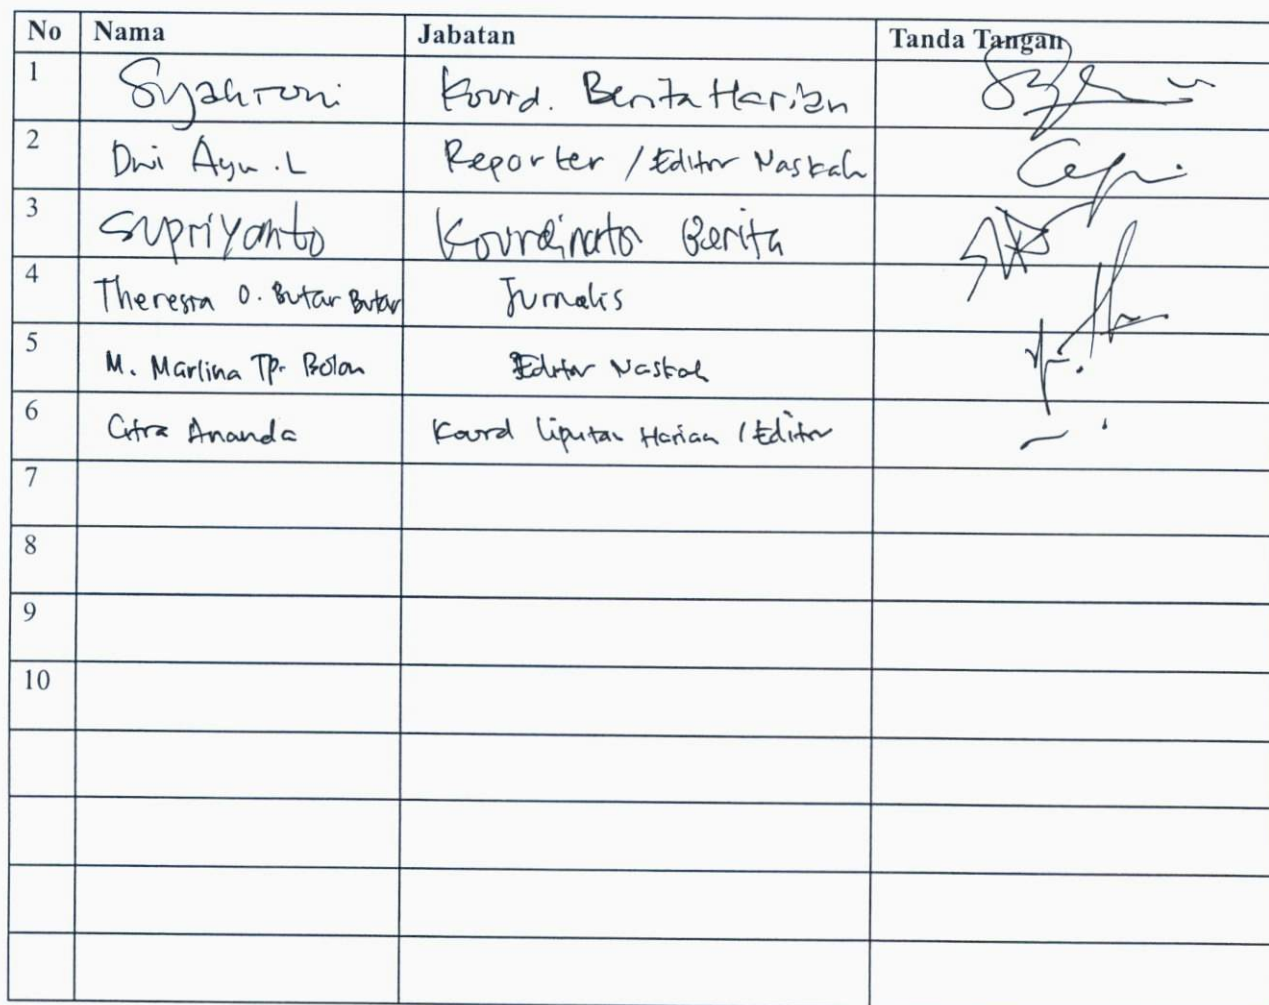 No Nama Jabatan Tanda Tangan
1 Syahroni Koord. Berita Harian
2 Dwi Ayu .L Reporter / Editor Naskah
3 Supriyanto Koordinator Berita
4 Theresia O. Butar Butar Jurnalis
5 M. Marlina Tp. Bolon Editor Naskah
6 Citra Ananda Koord Liputan Harian / Editor
7
8
9
10